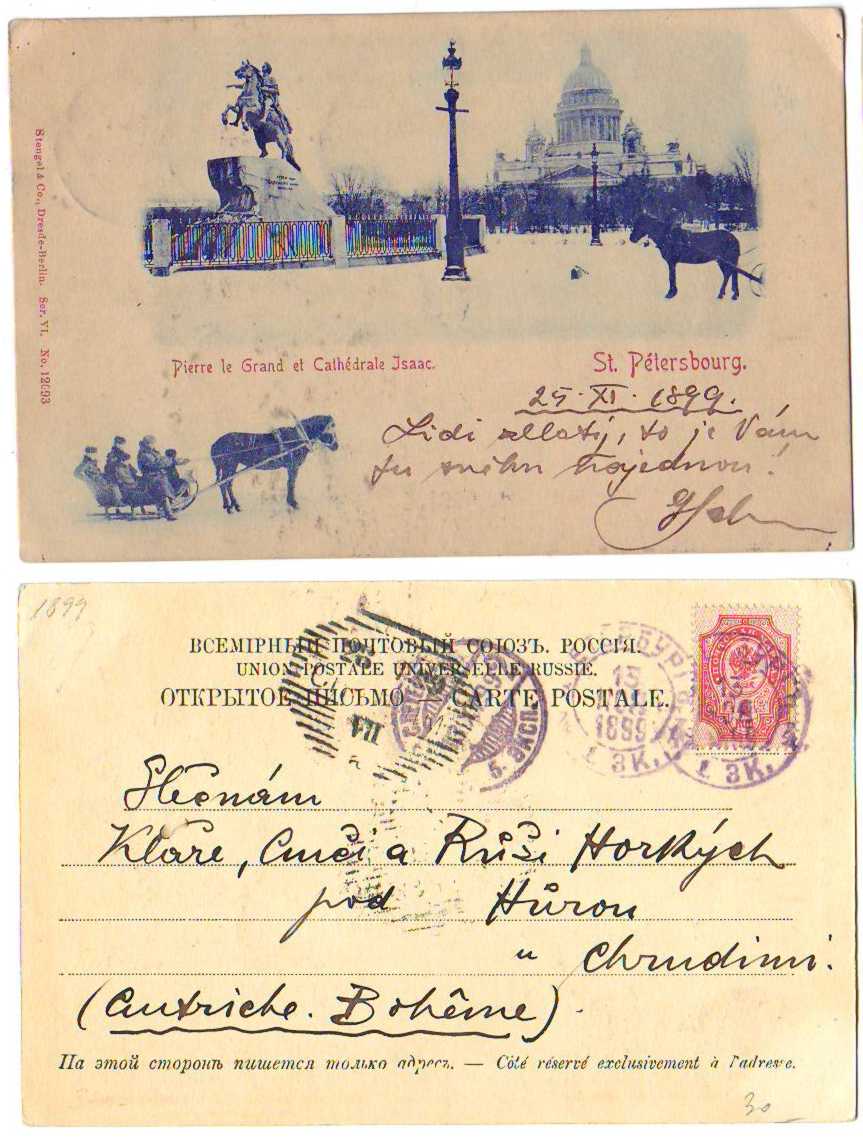 Stengel & Co., Dresde-Berlin. Ser. VI. No. 12693
Pierre le Grand et Cathédrale Isaac.
St. Pétersbourg.
25. XI. 1899.
Lidi zlatý, to je Vám
tu sněhu najednou!
1899
ВСЕМІРНЫЙ ПОЧТОВЫЙ СОЮЗЪ. РОССІЯ.
UNION POSTALE UNIVERSELLE. RUSSIE.
ОТКРЫТОЕ ПИСЬМО CARTE POSTALE.
13
1899
1 ЭК.
5. ЭКСП.
VII
Slečnám
Kláře, Anči a Růži Horkých
pod Hůrou
u Chrudimi.
(Autriche. Bohême).
На этой сторонѣ пишется только адресъ. — Côté réservé exclusivement à l'adresse.
30